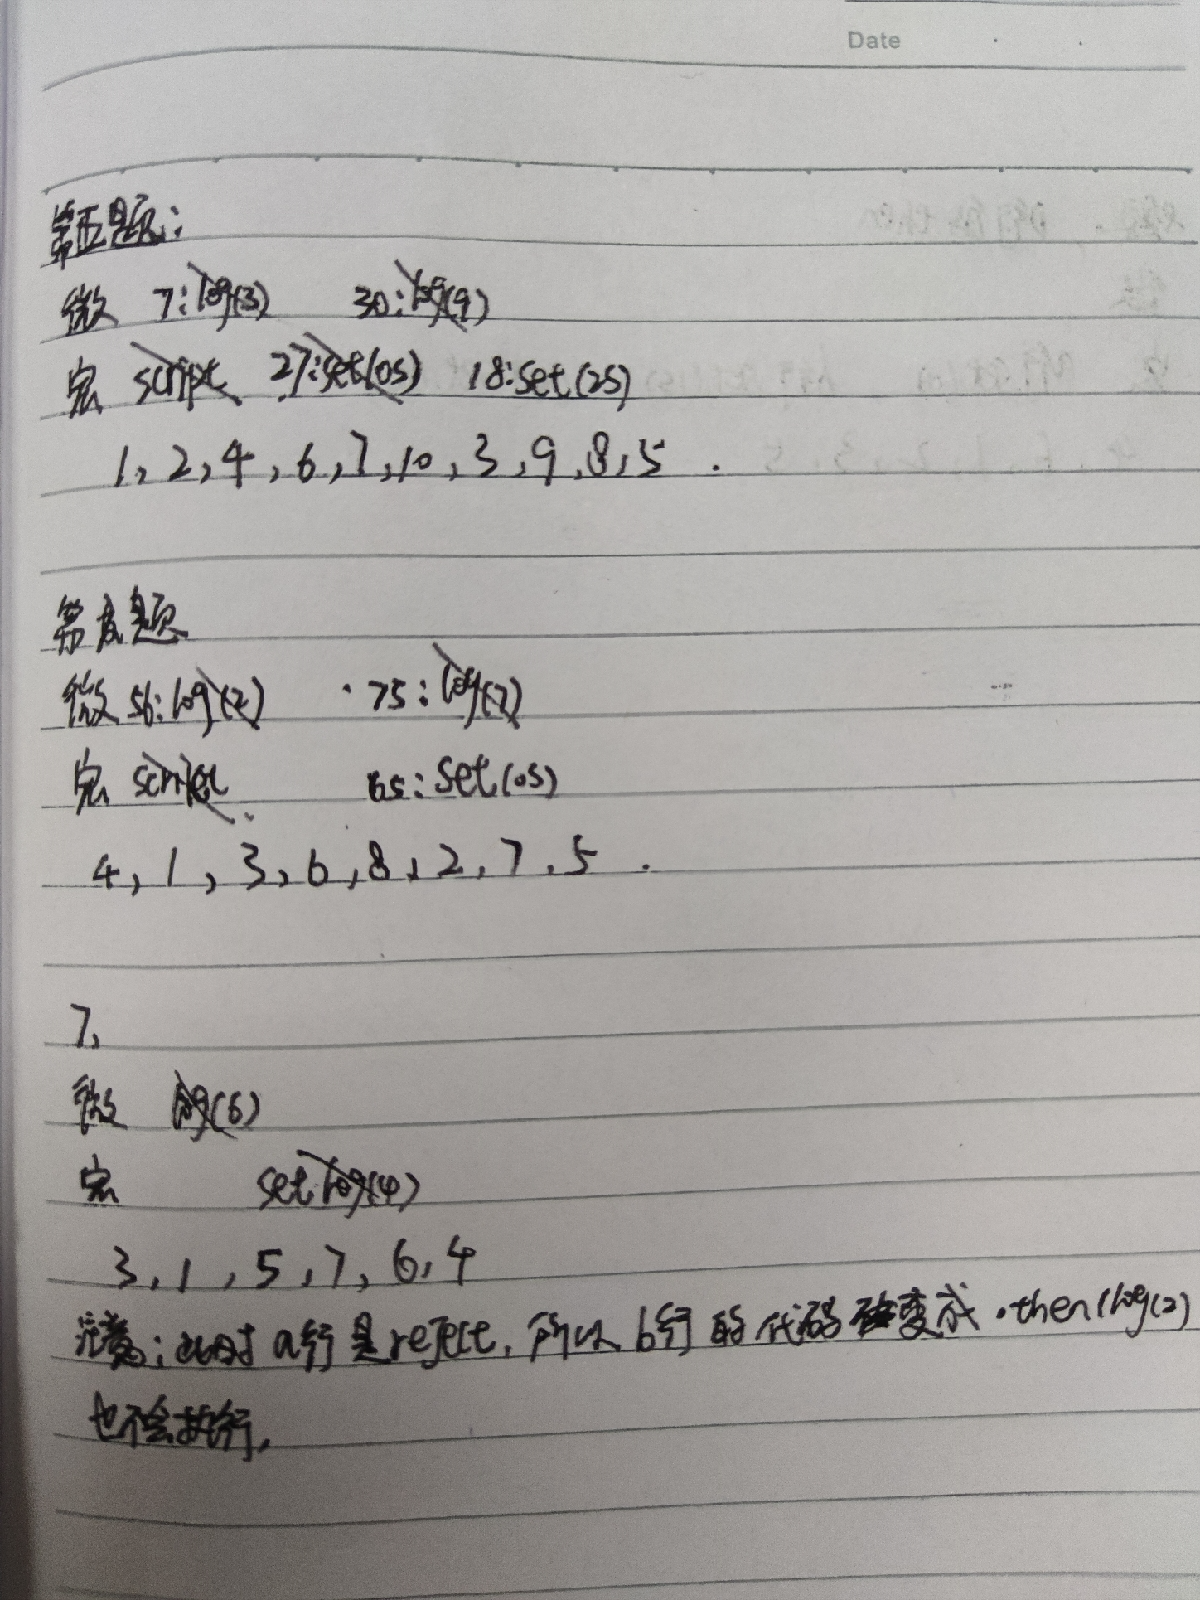 Date
第五题:
微 7:log(3) 30:log(9)
宏 script 27:set(0s) 18:set(2s)
1,2,4,6,7,10,3,9,8,5.
第六题
微 56:log(2) 75:log(7)
宏 script 65:set(0s)
4,1,3,6,8,2,7,5.
7,
微 log(6)
宏 set log(4)
3,1,5,7,6,4
注意:此时a行是reject,所以b行的代码变成.then(log(2)
也不会执行,